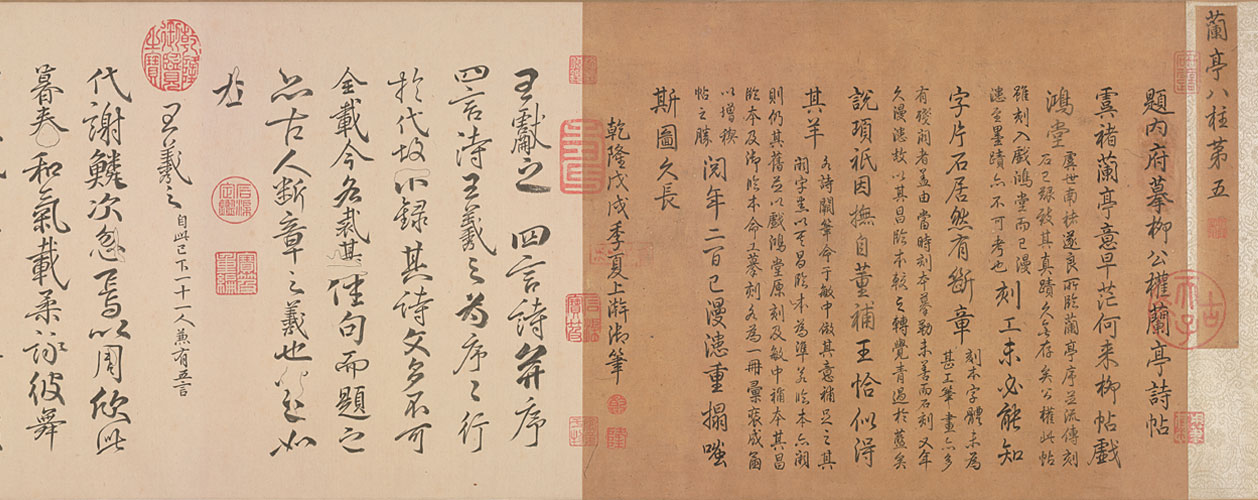 蘭亭八柱第五
題內府摹柳公權蘭亭詩帖
虞褚蘭亭意早茫何来柳帖戲
鴻堂
虞世南褚遂良所臨蘭亭序並流傳刻
石已故其真蹟久無存矣公權此帖
雖刻入戲鴻堂而已漫
漶至墨蹟亦不可考也
刻工未必能知
字片石居然有斷章
刻本字體未為
甚工筆畫亦多
有殘闕者蓋由當時刻本摹勒未善而石刻又年
久漫漶故以其昌臨本較之轉覺青過於藍矣
說項祇因撫自董補王恰似得
其羊
各詩闕筆命于敏中倣其意補足之其
闕字悉以其昌臨本為準若臨本亦闕
則仍其舊並以戲鴻堂原刻及敏中補本其昌
臨本及御臨本命工摹刻各為一冊彙裒成函
以增稧
帖之勝
閱年二百已漫漶重搨嗤
斯圖久長
乾隆戊戌季夏上澣御筆
王獻之四言詩并序
四言詩王羲之為序々行
於代故不録其詩文多不可
全載今各裁其佳句而題之
亦古人斷章之義也如
左
乾隆御覽之寶
石渠定鑑
寶笈重編
古稀天子
王羲之自此已下十一人兼有五言
代謝鱗次忽焉以周欣此
暮春和氣載柔詠彼舞